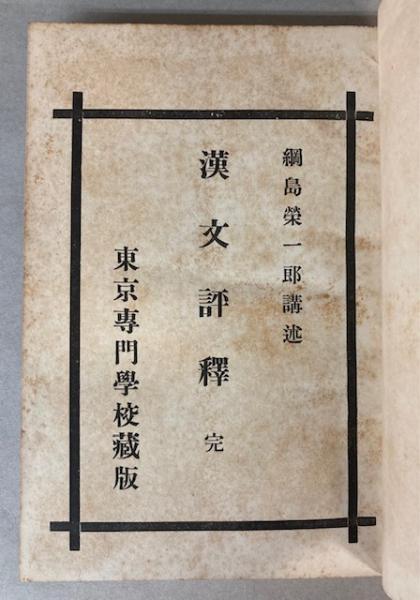 綱島榮一郎講述
漢文評釋 完
東京專門學校藏版